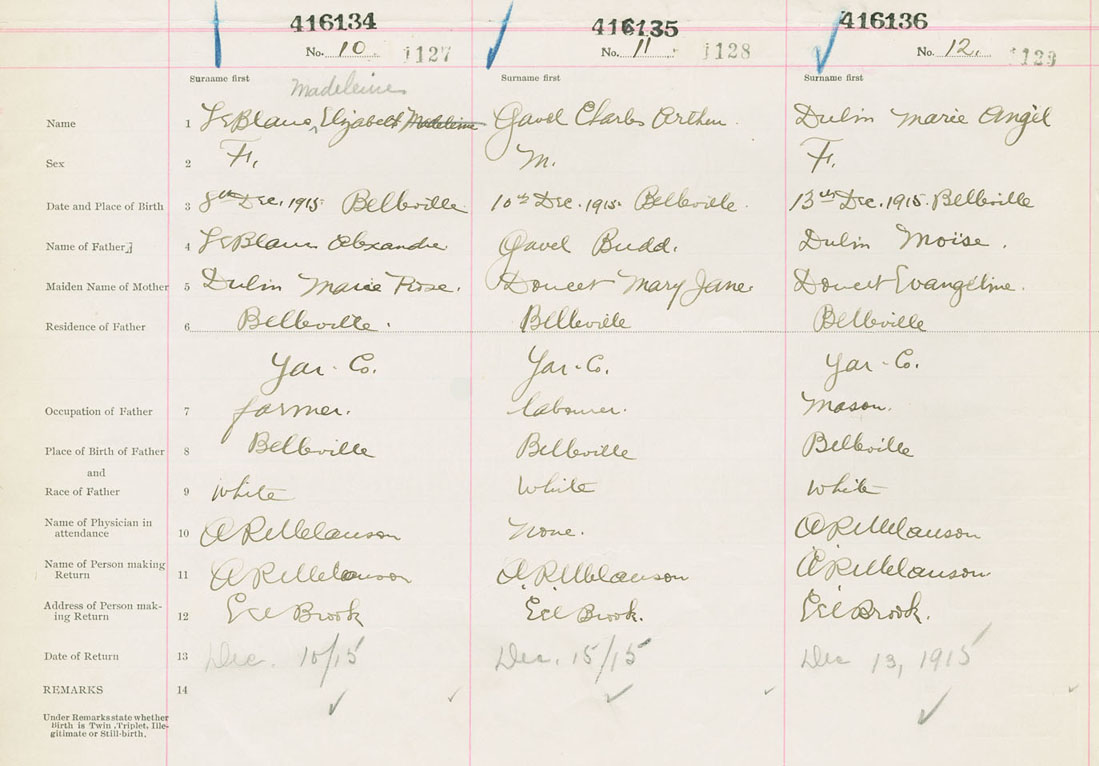 416134 416135 416136
No. 10 1127 No. 11 1128 No. 12. 1129
Surname first Surname first Surname first
Madeleine
Name 1 LeBlanc, Elizabeth Madeleine Gavel Charles Arthur. Dulin Marie Angèl
Sex 2 F. M. F.
Date and Place of Birth 3 8th Dec. 1915 Belleville. 10th Dec. 1915. Belleville. 13th Dec. 1915. Belleville
Name of Father 4 LeBlanc Alexandre Gavel Budd. Dulin Moïse.
Maiden Name of Mother 5 Dulin Marie Rose. Doucet Mary Jane. Doucet Evangéline.
Residence of Father 6 Belleville. Belleville Belleville
Yar-Co. Yar-Co. Yar-Co.
Occupation of Father 7 farmer. labourer. Mason.
Place of Birth of Father 8 Belleville Belleville Belleville
and
Race of Father 9 White White White
Name of Physician in
attendance 10 A R Melanson None. A R Melanson
Name of Person making
Return 11 A R Melanson A. R. Melanson A. R. Melanson
Address of Person mak-
ing Return 12 Eel Brook Eel Brook. Eel Brook.
Date of Return 13 Dec. 10/15 Dec. 15/15 Dec 13, 1915
REMARKS 14
Under Remarks state whether
Birth is Twin, Triplet, Ille-
gitimate or Still-birth.